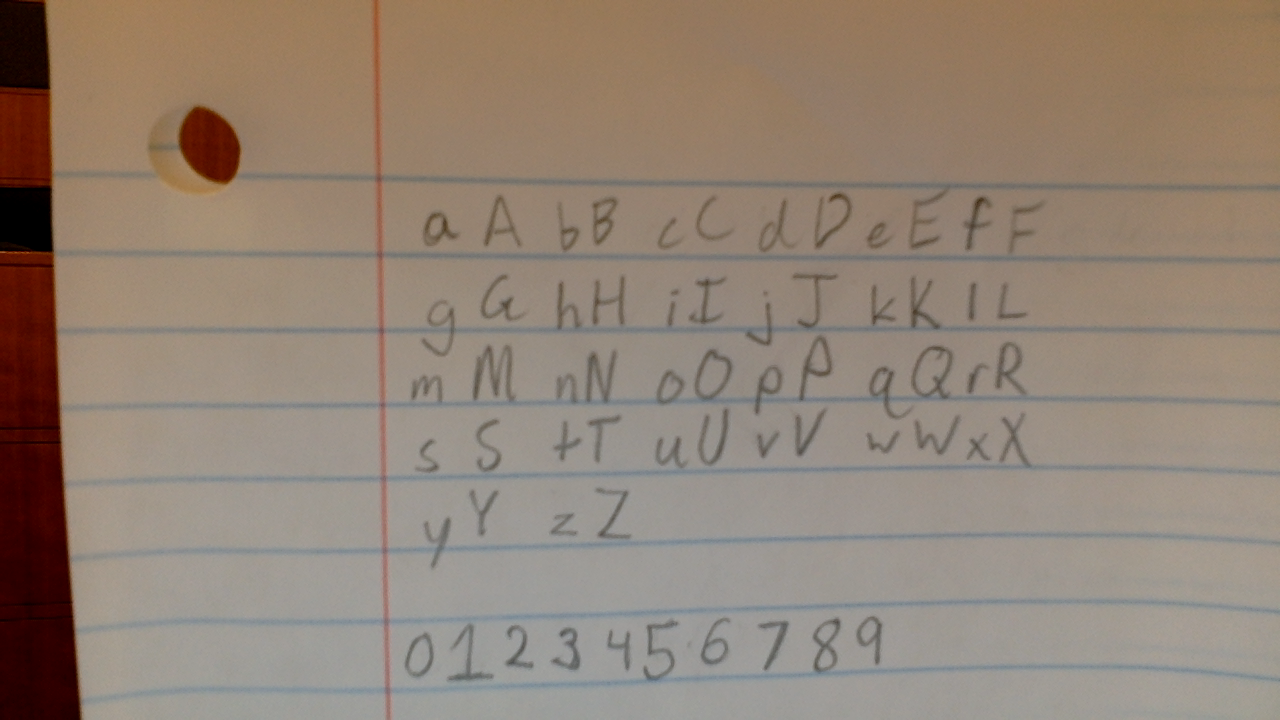 a A bB cC dD eE fF
g G hH iI jJ kK l L
m M nN oO pP qQ rR
s S tT uU vV wW xX
y Y zZ
0 1 2 3 4 5 6 7 8 9